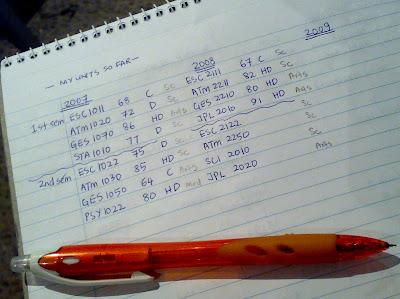 — MY UNITS SO FAR —
2007
1st sem ESC 1011 68 C Sc
ATM 1020 72 D Sc
GES 1070 86 HD Arts
STA 1010 77 D Sc
2nd sem ESC 1022 75 D Sc
ATM 1030 85 HD Sc
GES 1050 64 C Arts
PSY 1022 80 HD Med
2008
ESC 2111 67 C Sc
ATM 2211 82 HD Sc
GES 2210 80 HD Arts
JPL 2010 91 HD Arts
ESC 2122 Sc
ATM 2250
SCI 2010 Sc
JPL 2020 Arts
2009